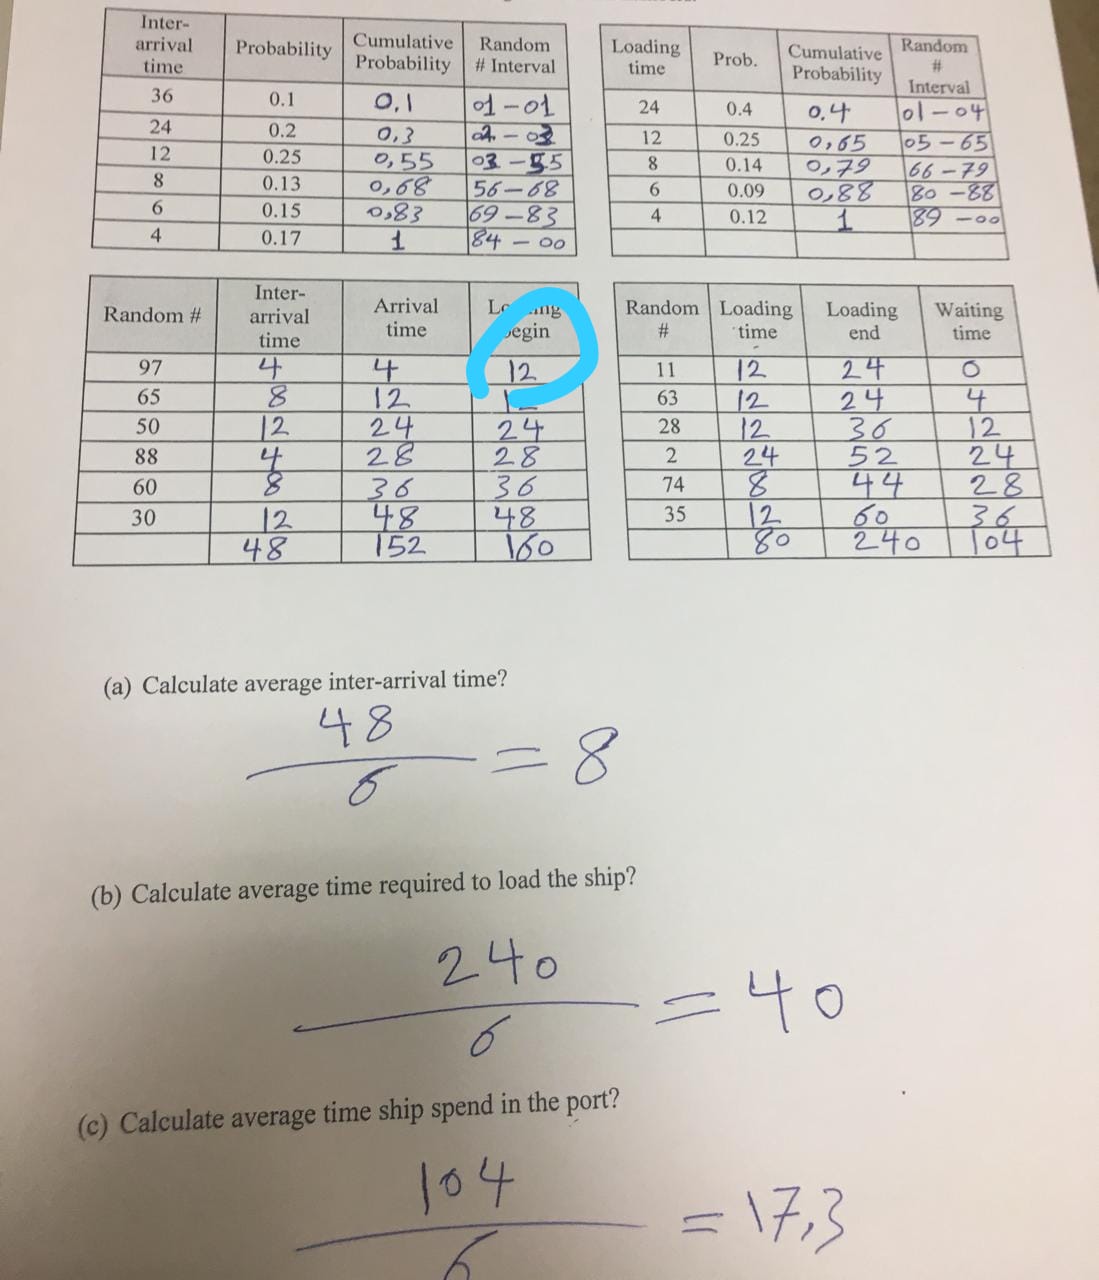 Inter-arrival time Probability Cumulative Probability Random # Interval
36 0.1 0,1 01-01
24 0.2 0,3
12 0.25 0,55 03-55
8 0.13 0,68 56-68
6 0.15 0,83 69-83
4 0.17 1 84-00
Loading time Prob. Cumulative Probability Random # Interval
24 0.4 0.4 01-04
12 0.25 0,65 05-65
8 0.14 0,79 66-79
6 0.09 0,88 80-88
4 0.12 1 89-00
Random # Inter-arrival time Arrival time begin
97 4 4 12
65 8 12
50 12 24 24
88 4 28 28
60 8 36 36
30 12 48 48
48 152 160
Random # Loading time Loading end Waiting time
11 12 24 0
63 12 24 4
28 12 36 12
2 24 52 24
74 8 44 28
35 12 60 36
80 240 104
(a) Calculate average inter-arrival time?
48
6
= 8
(b) Calculate average time required to load the ship?
240
6
= 40
(c) Calculate average time ship spend in the port?
104
6
= 17,3